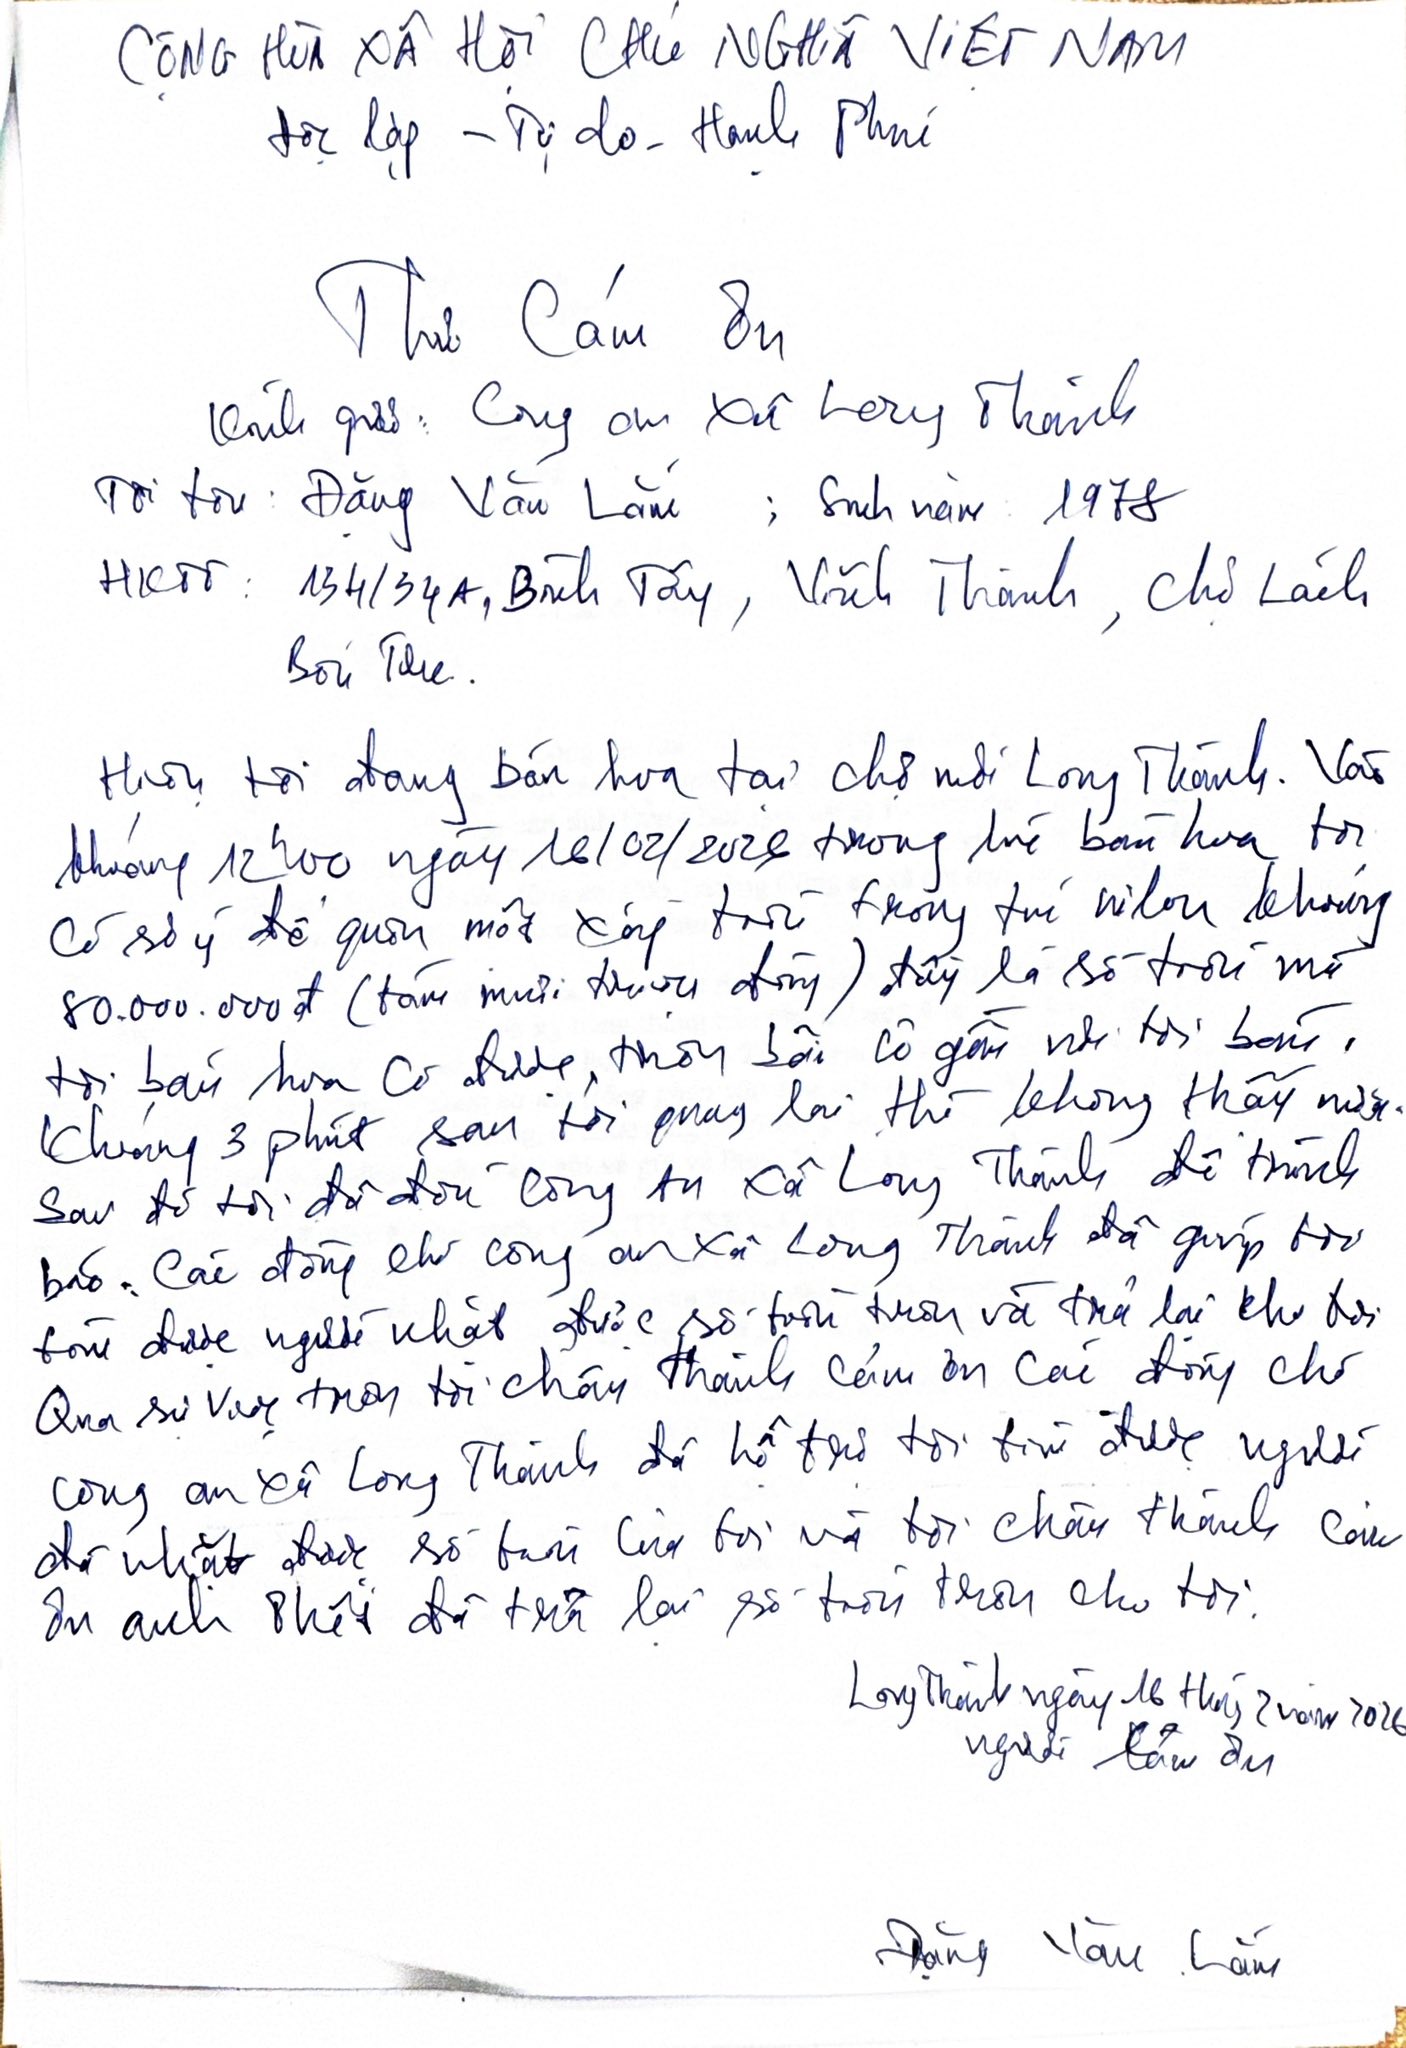 CỘNG HÒA XÃ HỘI CHỦ NGHĨA VIỆT NAM
Độc lập - Tự do - Hạnh Phúc
Thư Cám Ơn
Kính gửi: Công an xã Long Thành
Tôi tên: Đặng Văn Lắm ; Sinh năm: 1978
HKTT: 134/34A, Bình Tây, Vĩnh Thành, Chợ Lách
Bến Tre.
Hiện tôi đang bán hoa tại chợ mới Long Thành. Vào
khoảng 12h00 ngày 16/02/2026 trong lúc bán hoa tôi
có sơ ý để quên một xấp tiền trong túi nilon khoảng
80.000.000đ (tám mươi triệu đồng) đây là số tiền mà
tôi bán hoa có được, trên bãi cỏ gần nơi tôi bán.
Khoảng 3 phút sau tôi quay lại thì không thấy nữa.
Sau đó tôi đã đến Công An xã Long Thành để trình
báo. Các đồng chí công an xã Long Thành đã giúp tôi
tìm được người nhặt được số tiền trên và trả lại cho tôi
Qua sự việc trên tôi chân thành cám ơn các đồng chí
công an xã Long Thành đã hỗ trợ tôi tìm được người
đã nhặt được số tiền của tôi và tôi chân thành cám
ơn anh đã trả lại số tiền trên cho tôi.
Long Thành ngày 16 tháng 2 năm 2026
người cám ơn
Đặng Văn Lắm